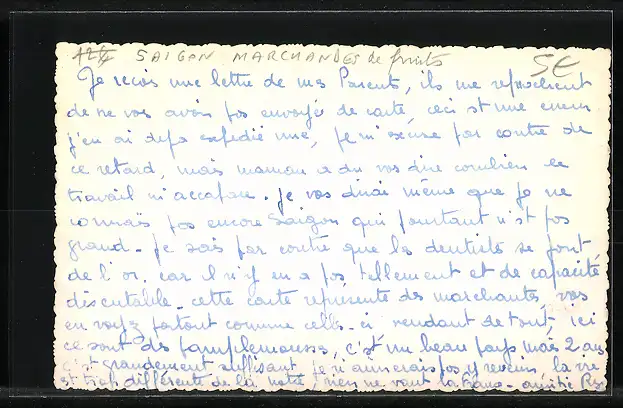 SAIGON MARCHANDES de fruits 5€
Je reçois une lettre de mes Parents, ils me reprochent
de ne vos avoir pas envoyée de carte, ceci est une erreur
j'en ai deja expédié une, je m'excuse par contre de
ce retard, mais maman a du vos dire combien le
travail m'accapare. Je vos dirai même que je ne
connais pas encore Saigon qui pourtant n'est pas
grand. Je sais par contre que les dentistes se font
de l'or, car il n'y en a pas tellement et de capacité
discutable. cette carte represente des marchantes, vos
en voyez partout comme celles-ci vendant de tout, ici
ce sont des pamplemousses, c'est un beau pays mais 2 ans
c'est grandement suffisant, je n'aimerais pas y revenir, la vie
est trop différente de la notre, rien ne vaut la France